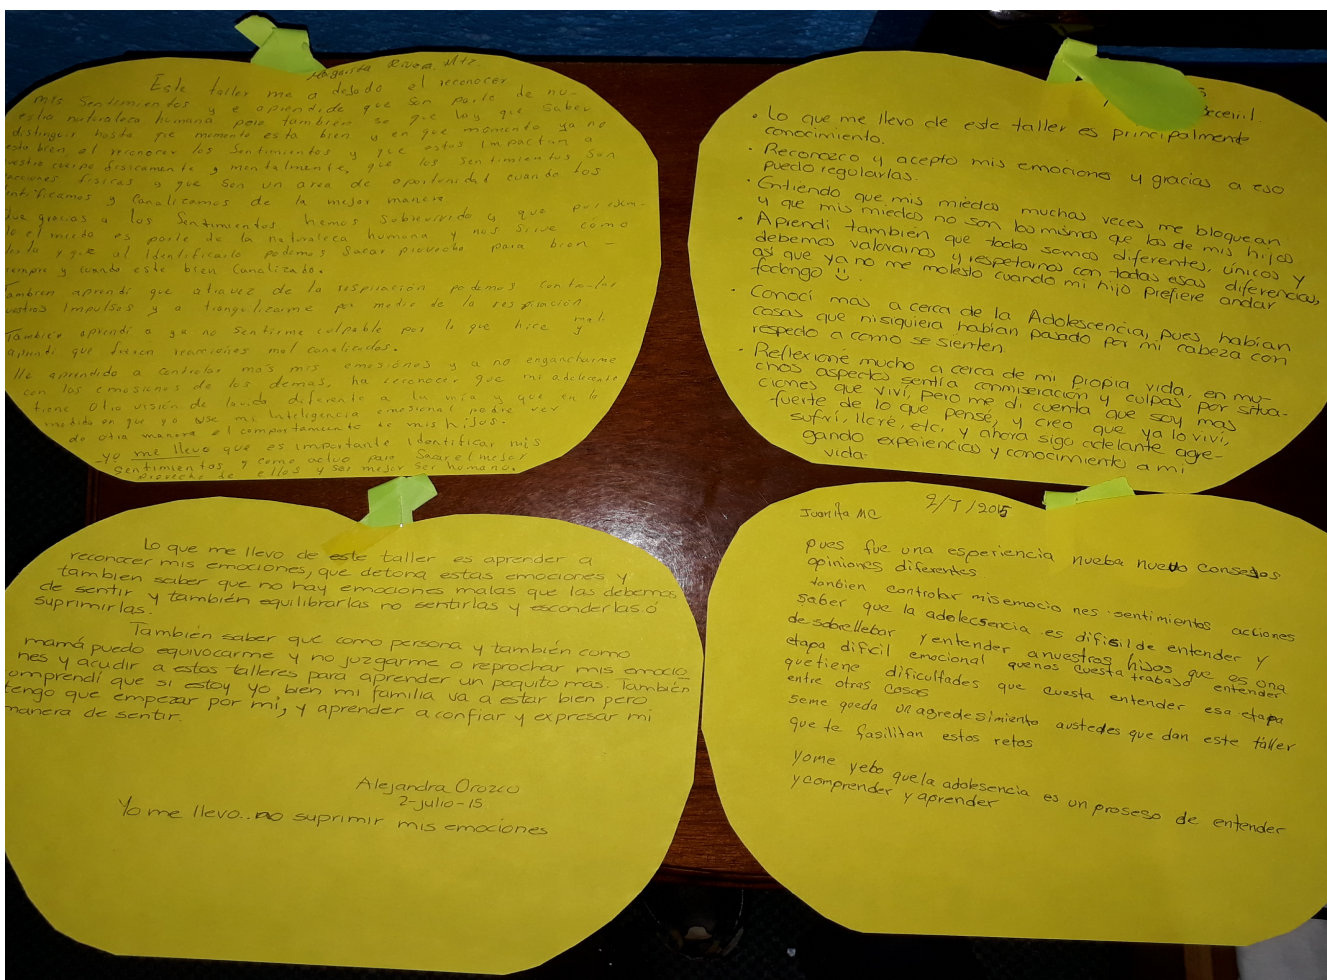 Margarita Rivera Mtz.
Este taller me a dejado el reconocer
mis Sentimientos y e aprendide que son parte de nu-
estra naturaleca humana pero tambien se que hay que saber
distinguir hasta que momento esta bien y en que momento ya no
esta bien el reconocer los Sentimientos y que estos impactan a
nuestro cuerpo fisicamente y mentalmente, que los sentimientos son
reacciones fisicas y que son un area de oportunidad cuando los
identificamos y Canalicamos de la mejor manera
que gracias a los Sentimientos hemos Sobrevivido y que por ejem-
lo el miedo es parte de la naturaleca humana y nos sirve cómo
y que al Identificarlo podemos Sacar provecho para bien -
siempre y cuando este bien Canalizado.
Tambien aprendi que atravez de la respiración podemos controlar
nuestros Impulsos y a tranquilicarme por medio de la respiración
También aprendi a ya no Sentirme culpable por lo que hice mal y
aprendi que fueron reacciones mal canalizadas.
He aprendido a controlar más mis emosiónes y a no engancharme
con las emosiones de los demas, ha reconocer que mi adolecente
tiene otro visión de la vida diferente a la mia y que en la
medida en que yo use mi Inteligencia emosional podre ver
de otra manera el comportamiento de mis hijos.
-yo me llevo que es importante Identificar mis
Sentimientos y como actuo para Sacar el mejor
provecho de ellos y ser mejor ser humano.
Becerril.
• Lo que me llevo de este taller es principalmente
conocimiento.
• Reconozco y acepto mis emociones y gracias a eso
puedo regularlas.
• Entiendo que mis miedos muchas veces me bloquean
y que mis miedos no son los mismos que los de mis hijos
• Aprendí también que todos somos diferentes, únicos y
debemos valorarnos y respetarnos con todas esas diferencias,
así que ya no me molesto cuando mi hijo prefiere andar
fodongo ☺.
• Conocí mas a cerca de la Adolescencia, pues habían
cosas que nisiquiera habían pasado por mi cabeza con
respecto a como se sienten.
• Reflexioné mucho a cerca de mi propia vida, en mu-
chos aspectos sentía conmiseración y culpas por situa-
ciones que viví, pero me di cuenta que soy mas
fuerte de lo que pensé, y creo que ya lo viví,
sufrí, lloré, etc, y ahora sigo adelante agre-
gando experiencias y conocimiento a mi
vida.
Lo que me llevo de este taller es aprender a
reconocer mis emociones, que detona estas emociones y
tambien saber que no hay emociones malas que las debemos
de sentir y también equilibrarlas no sentirlas y esconderlas ó
suprimirlas.
También saber que como persona y también como
mamá puedo equivocarme y no juzgarme o reprochar mis emocio
nes y acudir a estos talleres para aprender un poquito más. También
omprendí que si estoy yo bien mi familia va a estar bien pero
tengo que empezar por mi, y aprender a confiar y expresar mi
manera de sentir.
Alejandra Orozco
2-julio-15.
Yo me llevo.. no suprimir mis emociones
Juanita MC 2/7/2015
pues fue una esperiencia nueba nuevo consejos
opiniones diferentes
tanbien controlar mis emocio nes sentimientos actiones
saber que la adolecsencia es difisil de entender y
de sobrellebar y entender a nuestros hijos que es una
etapa dificil emocional que nos cuesta trabajo entender
que tiene dificultades que cuesta entender esa etapa
entre otras cosas
seme queda un agredesimiento austedes que dan este taller
que te fasilitan estos retos
yo me yebo que la adolesencia es un proseso de entender
y comprender y aprender